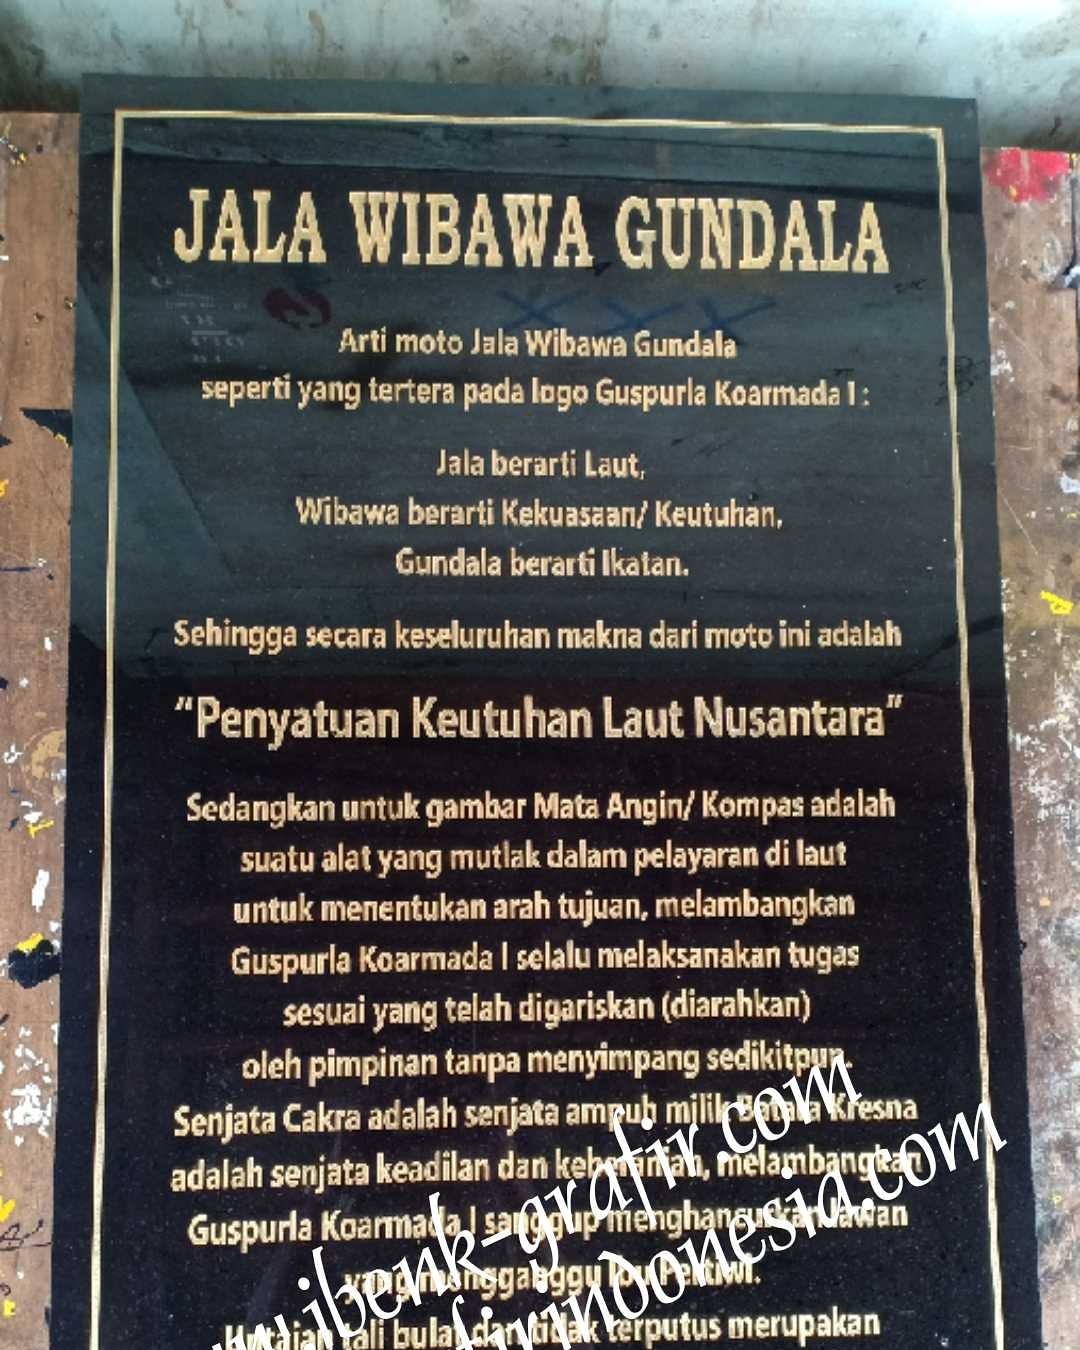 JALA WIBAWA GUNDALA
Arti moto Jala Wibawa Gundala
seperti yang tertera pada logo Guspurla Koarmada I :
Jala berarti Laut,
Wibawa berarti Kekuasaan/ Keutuhan,
Gundala berarti Ikatan.
Sehingga secara keseluruhan makna dari moto ini adalah
“Penyatuan Keutuhan Laut Nusantara”
Sedangkan untuk gambar Mata Angin/ Kompas adalah
suatu alat yang mutlak dalam pelayaran di laut
untuk menentukan arah tujuan, melambangkan
Guspurla Koarmada I selalu melaksanakan tugas
sesuai yang telah digariskan (diarahkan)
oleh pimpinan tanpa menyimpang sedikitpun.
Senjata Cakra adalah senjata ampuh milik Batara Kresna
adalah senjata keadilan dan kebenaran, melambangkan
Guspurla Koarmada I sanggup menghancurkan lawan
yang mengganggu Ibu Pertiwi.
tali bulat dan tidak terputus merupakan
ibenk-grafir.com